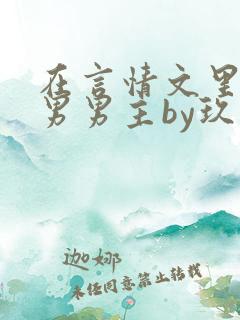 在言情文里
男男主by玖
迦娜
未经同意禁止转载